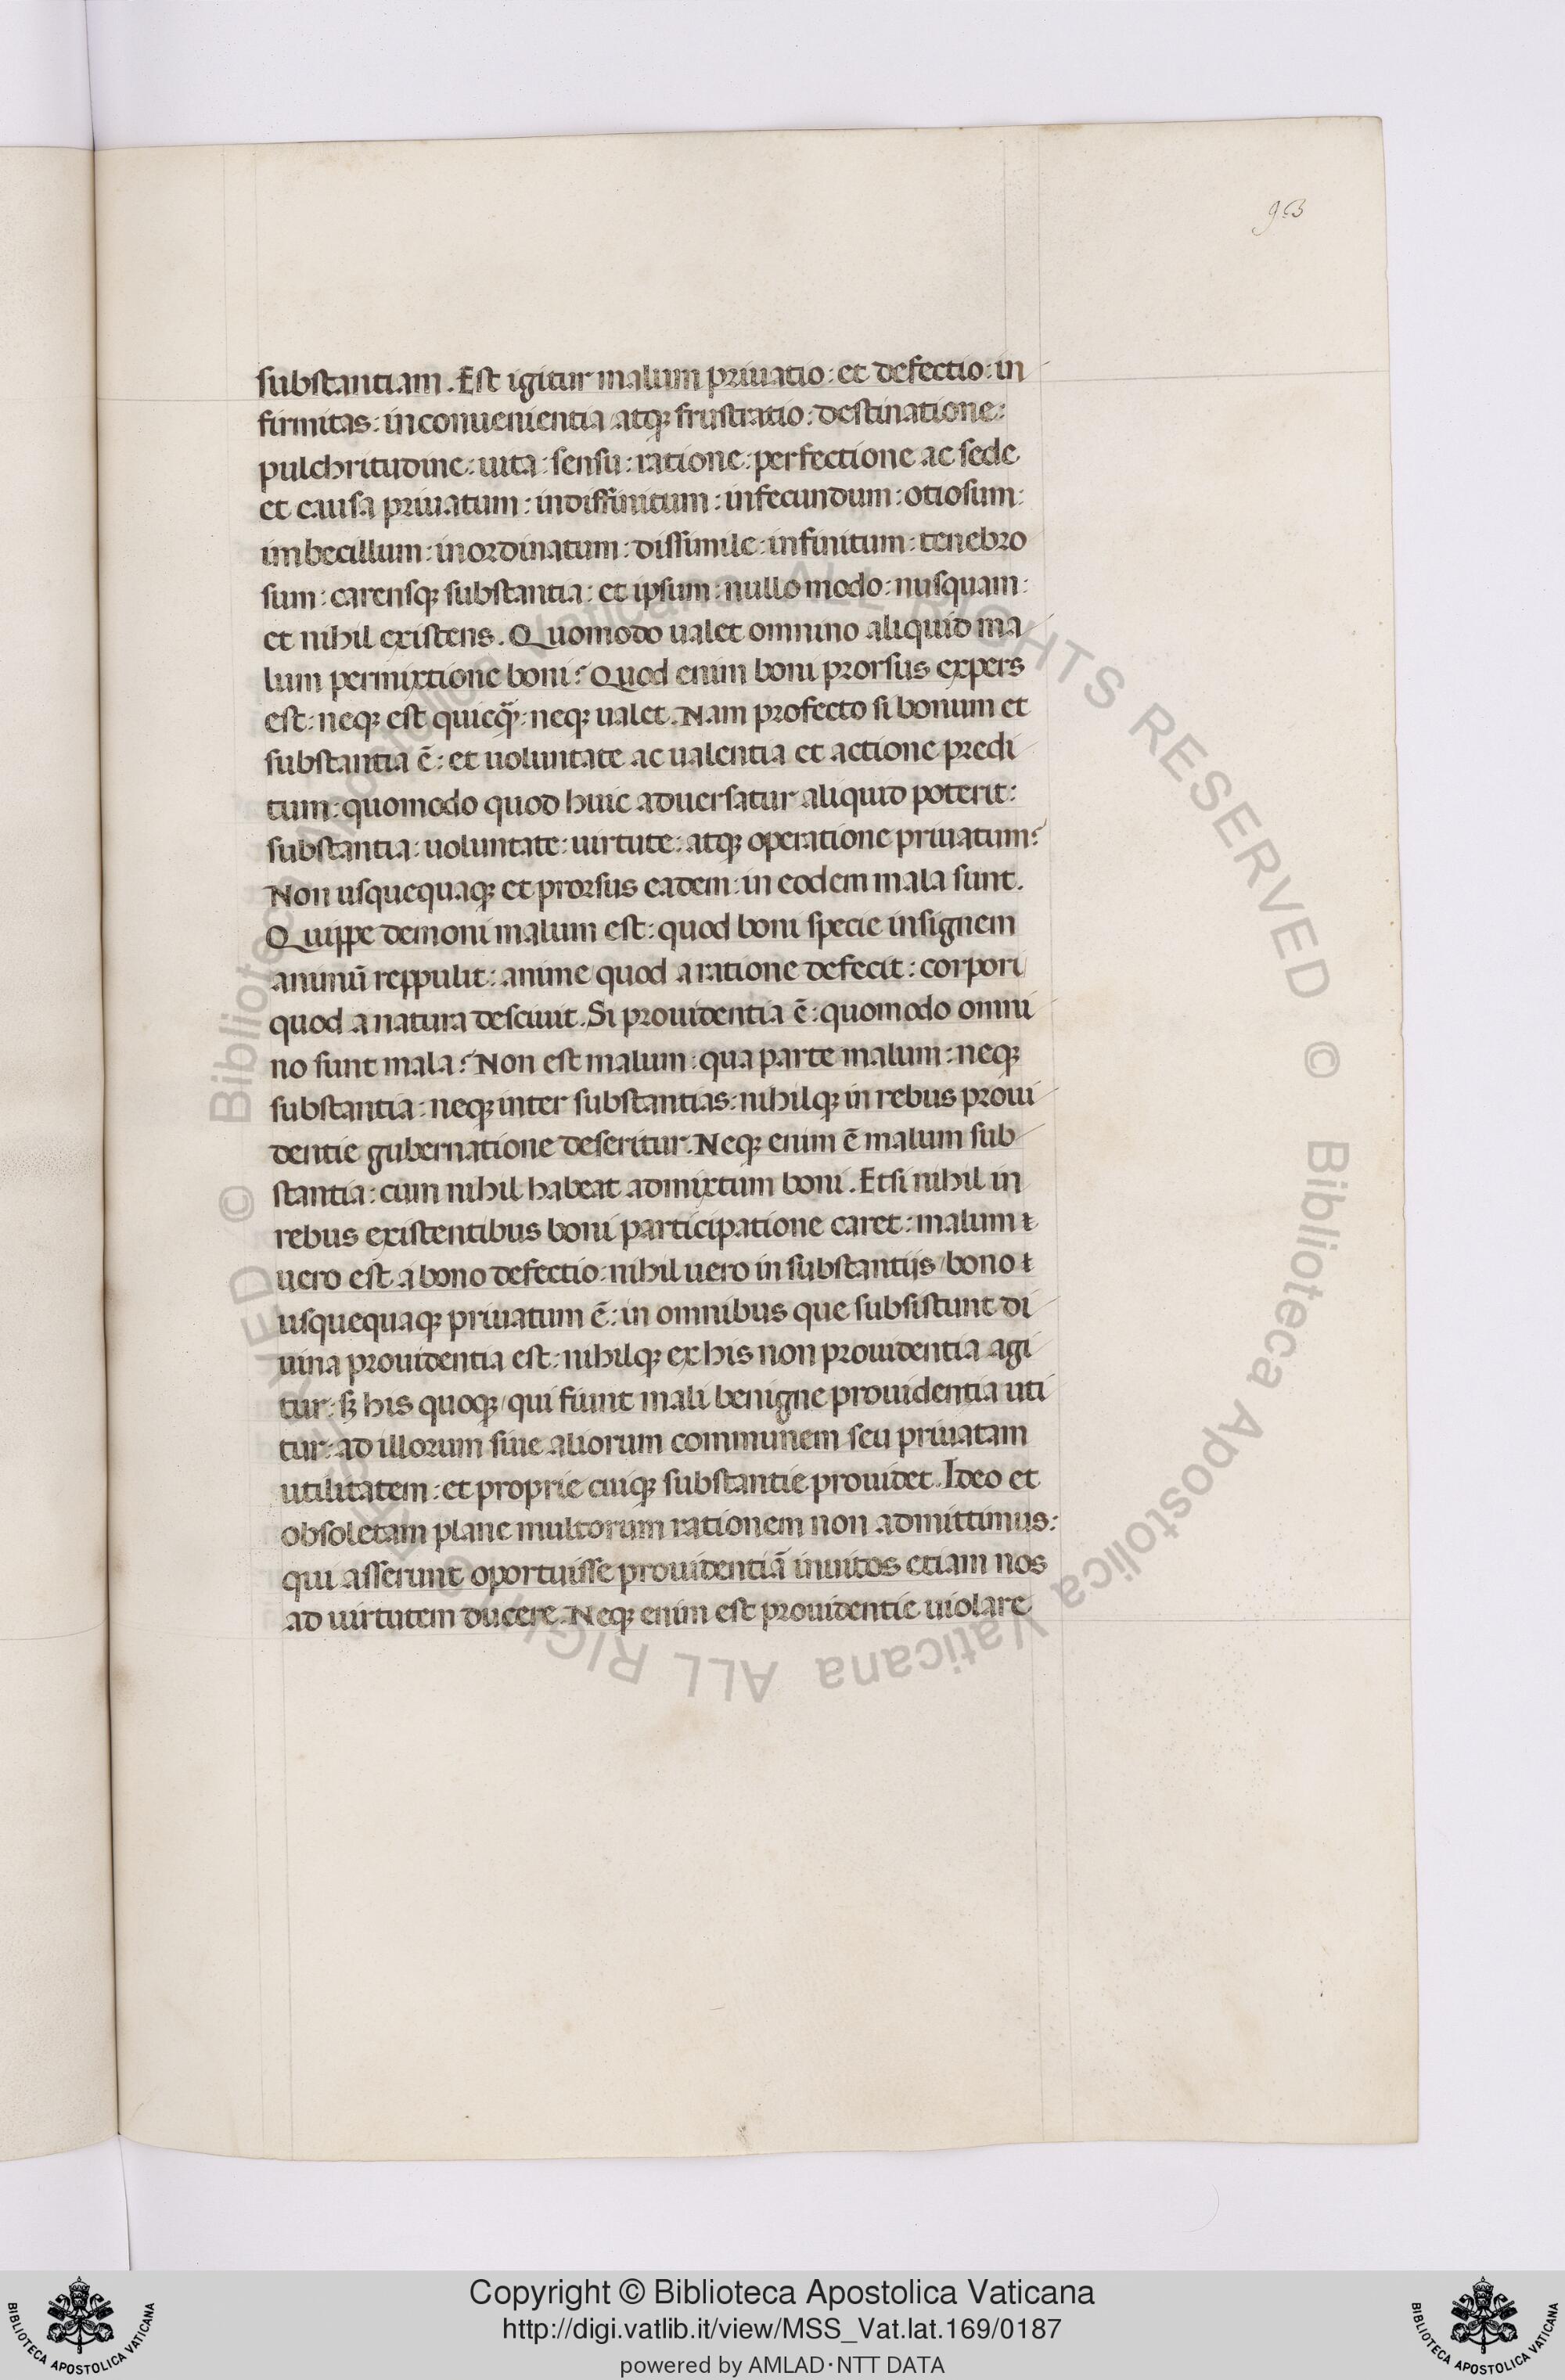 93
substantiam. Est igitur malum priuatio: et defectio: in
firmitas: inconuenientia atqꝫ frustratio: destinatione:
pulchritudine: uita: sensu: ratione: perfectione ac sede
et causa priuatum: indiffinitum: infecundum: otiosum:
imbecillum: inordinatum: dissimile: infinitum: tenebro
sum: carensqꝫ substantia: et ipsum: nullo modo: nusquam:
et nihil existens. Quomodo ualet omnino aliquid ma
lum permixtione boni? Quod enim boni prorsus expers
est: neqꝫ est quicq̃: neqꝫ ualet. Nam profecto si bonum et
substantia ē: et uoluntate ac ualentia et actione predi
tum: quomodo quod huic aduersatur aliquid poterit:
substantia: uoluntate: uirtute: atqꝫ operatione priuatum?
Non usquequaqꝫ et prorsus eadem: in eodem mala sunt.
Quippe demoni malum est: quod boni specie insignem
animū reppulit: anime quod a ratione defecit: corpori
quod a natura desciuit. Si prouidentia ē: quomodo omni
no sunt mala? Non est malum: qua parte malum: neqꝫ
substantia: neqꝫ inter substantias: nihilqꝫ in rebus proui
dentie gubernatione deseritur. Neqꝫ enim ē malum sub
stantia: cum nihil habeat admixtum boni. Etsi nihil in
rebus existentibus boni participatione caret: malum
uero est a bono defectio: nihil uero in substantijs / bono
usquequaqꝫ priuatum ē: in omnibus que subsistunt di
uina prouidentia est: nihilqꝫ ex his non prouidentia agi
tur: sꝫ his quoqꝫ / qui fiunt mali benigne prouidentia uti
tur: ad illorum siue aliorum communem seu priuatam
utilitatem: et proprie cuiqꝫ substantie prouidet. Ideo et
obsoletam plane multorum rationem non admittimus:
qui asserunt oportuisse prouidentiā inuitos etiam nos
ad uirtutem ducere. Neqꝫ enim est prouidentie uiolare
© Biblioteca Apostolica Vaticana ALL RIGHTS RESERVED
© Biblioteca Apostolica Vaticana ALL RIGHTS RESERVED
Copyright © Biblioteca Apostolica Vaticana
http://digi.vatlib.it/view/MSS_Vat.lat.169/0187
powered by AMLAD·NTT DATA
BIBLIOTECA APOSTOLICA VATICANA
BIBLIOTECA APOSTOLICA VATICANA